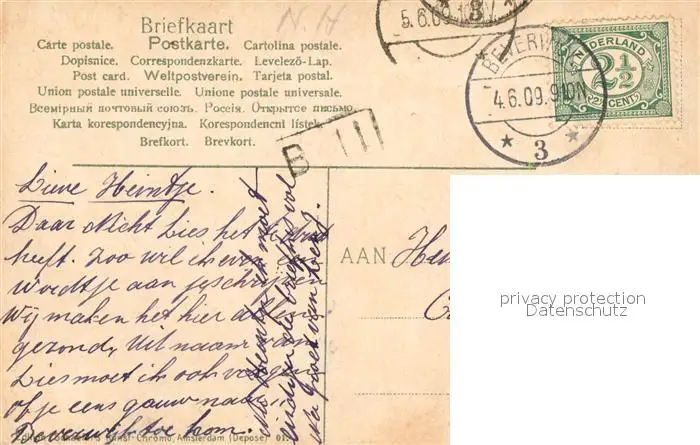 N.H
Briefkaart
Carte postale. Postkarte. Cartolina postale.
Dopisnice. Correspondenzkarte. Levelező-Lap.
Post card. Weltpostverein. Tarjeta postal.
Union postale universelle. Unione postale universale.
Всемірный почтовый союзъ. Россія. Открытое письмо.
Karta korespondencyjna. Korespondencni lístek.
Brefkort. Brevkort.
5.6.09
3
BEVERWIJK
4.6.09.9-10N
3
NEDERLAND
2½
2½ CENT
B III
Lieve Heintje.
Daar Nicht Lies het
heeft. Zoo wil ik even een
woordje aan je schrijven
Wij maken het hier allen
gezond, Uit naam van
Lies moet ik ook vragen
of je eens gauw naar
Beverwijk toe kom.
AAN
privacy protection
Datenschutz
Kunst-Chromo, Amsterdam (Deposé) 01.